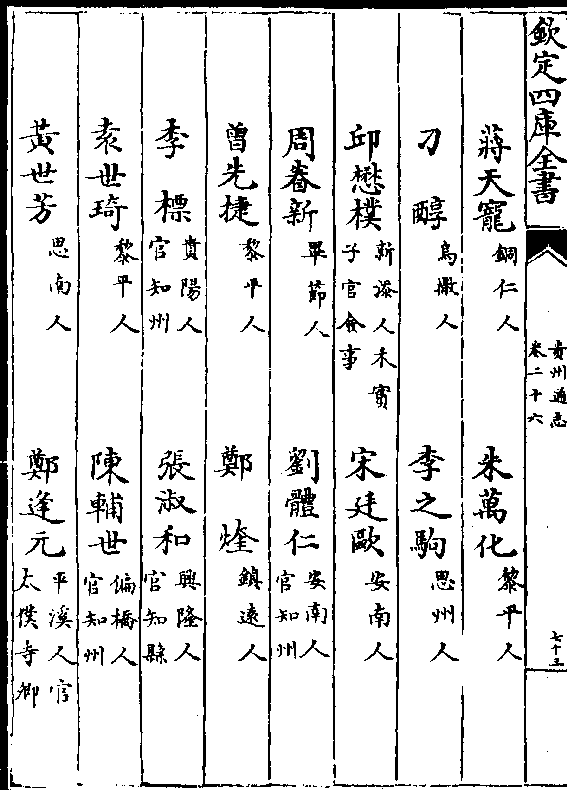 欽定四庫全書
貴州通志
卷二十六
七十三
蔣天寵 銅仁人 朱萬化 黎平人
刀醇 烏撒人 李之駒 思州人
邱懋樸 新添人禾實子官僉事 宋廷歐 安南人
周眷新 畢節人 劉體仁 安南人官知州
曾先捷 黎平人 鄭煃 鎮遠人
李標 貴陽人官知州 張淑和 興隆人官知縣
袁世琦 黎平人 陳輔世 偏橋人官知州
黃世芳 思南人 鄭逢元 平溪人官太僕寺卿